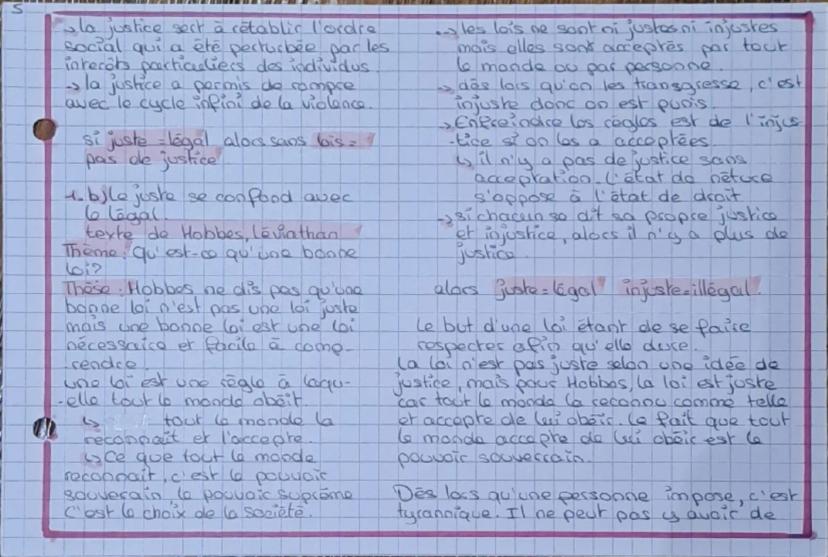 5
→ la justice sert à rétablir l'ordre
social qui a été perturbée par les
interêts particuliers des individus.
→ la justice a permis de rompre
avec le cycle infini de la violence.
si juste = légal alors sans lois =
pas de justice
1.b) Le juste se confond avec
le légal.
texte de Hobbes, Léviathan
Thème : qu'est-ce qu'une bonne
loi?
Thèse : Hobbes ne dis pas qu'une
bonne loi n'est pas une loi juste
mais une bonne loi est une loi
nécessaire et facile à comp-
rendre.
une loi est une règle à laqu-
-elle tout le monde obéit.
↳ tout le monde la
reconnaît et l'accepte.
↳ Ce que tout le monde
reconnaît, c'est le pouvoir
souverain, le pouvoir suprême
c'est le choix de la société.
→ les lois ne sont ni justes ni injustes
mais elles sont acceptés par tout
le monde ou par personne.
→ dès lors qu'on les transgresse, c'est
injuste donc on est punis.
→ Enfreindre les règles est de l'injus
-tice si on les a acceptées
↳ il n'y a pas de justice sans
acceptation. L'état de nature
s'oppose à l'état de droit
→ si chacun so dit sa propre justice
et injustice, alors il n'y a plus de
justice.
alors juste = légal injuste = illégal.
Le but d'une loi étant de se faire
respecter afin qu'elle dure.
La loi n'est pas juste selon une idée de
justice, mais pour Hobbes, la loi est juste
car tout le monde la reconnu comme telle
et accepte de lui obéir. Le fait que tout
le monde accepte de lui obéir est le
pouvoir souverrain.
Dès lors qu'une personne impose, c'est
tyrannique. Il ne peut pas y avoir de